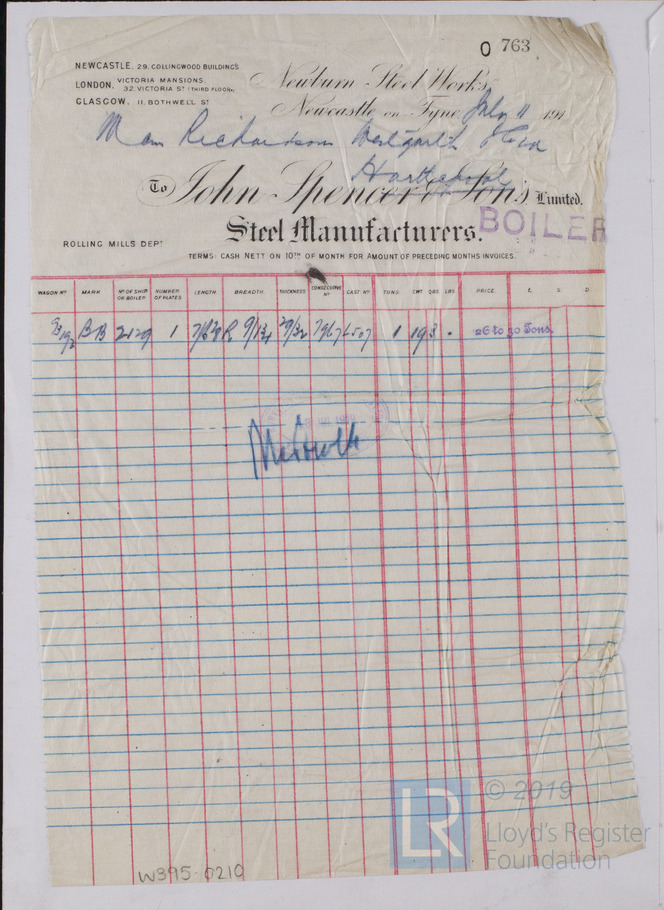 O 763
NEWCASTLE. 29, COLLINGWOOD BUILDINGS
LONDON. VICTORIA MANSIONS. 32, VICTORIA ST (THIRD FLOOR)
GLASGOW. 11. BOTHWELL ST
Newburn Steel Works,
Newcastle on Tyne, July 11 191
Richardson Westgarth & Co Ld
Hartlepool
To John Spencer & Sons Limited.
Steel Manufacturers.
BOILER
ROLLING MILLS DEPT
TERMS: CASH NETT ON 10TH OF MONTH FOR AMOUNT OF PRECEDING MONTHS INVOICES.
WAGON No MARK No OF SHIP OR BOILER NUMBER OF PLATES LENGTH BREADTH THICKNESS CONSECUTIVE No CAST No TONS CWT QRS LBS PRICE £ S. D.
BB 2129 1 29/32 7967 6507 1 19 3 . 26 to 30 Tons.
W395-0210
LR
© 2019
Lloyd's Register
Foundation